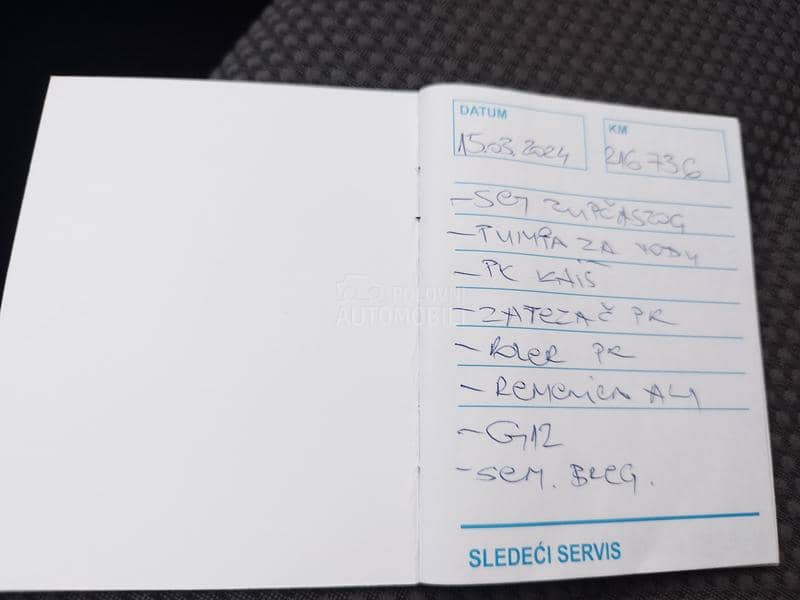 DATUM
15.03.2024
KM
216 736
- SET ZUPČASTOG
- PUMPA ZA VODU
- PK KAIŠ
- ZATEZAČ PK
- ROLER PK
- REMENICA ALT
- G12
- SEM. BREG.
SLEDEĆI SERVIS
POLOVNI
AUTOMOBILI